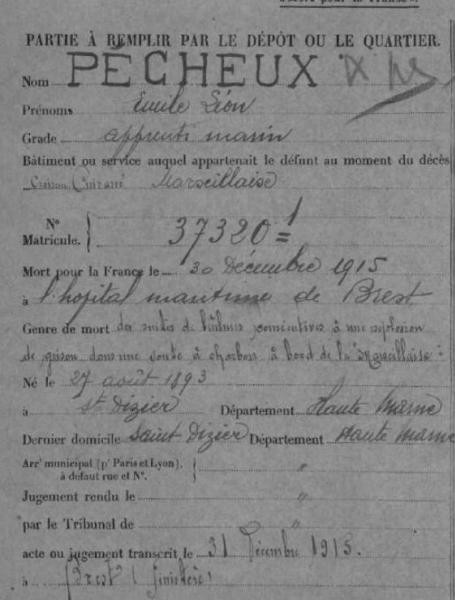 PARTIE À REMPLIR PAR LE DÉPÔT OU LE QUARTIER.
Nom PÉCHEUX
Prénoms Emile Léon
Grade apprenti marin
Bâtiment ou service auquel appartenait le défunt au moment du décès
Croiseur Cuirassé Marseillaise
N° Matricule. 37320=1
Mort pour la France le 30 Décembre 1915
à l'hopital maritime de Brest
Genre de mort des suites de brûlures consécutives à une explosion
de grisou dans une soute à charbon à bord de la "Marseillaise"
Né le 27 août 1893
à St Dizier Département Haute Marne
Dernier domicile Saint Dizier Département Haute Marne
Arrt municipal (pr Paris et Lyon), à défaut rue et N°. "
Jugement rendu le "
par le Tribunal de "
acte ou jugement transcrit le 31 Décembre 1915.
à Brest (Finistère)